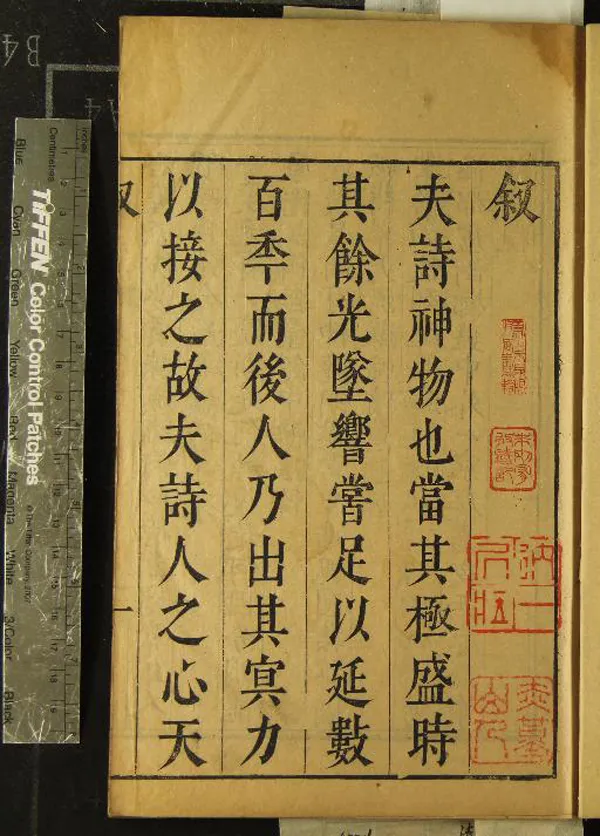 叙
夫詩神物也當其極盛時
其餘光墜響嘗足以延數
百秊而後人乃出其冥力
以接之故夫詩人之心天
叙
一
B4
A4
TIFFEN Color Control Patches
Inches
Centimetres
Blue
Cyan
Green
Yellow
Red
Magenta
White
3/Color
Black